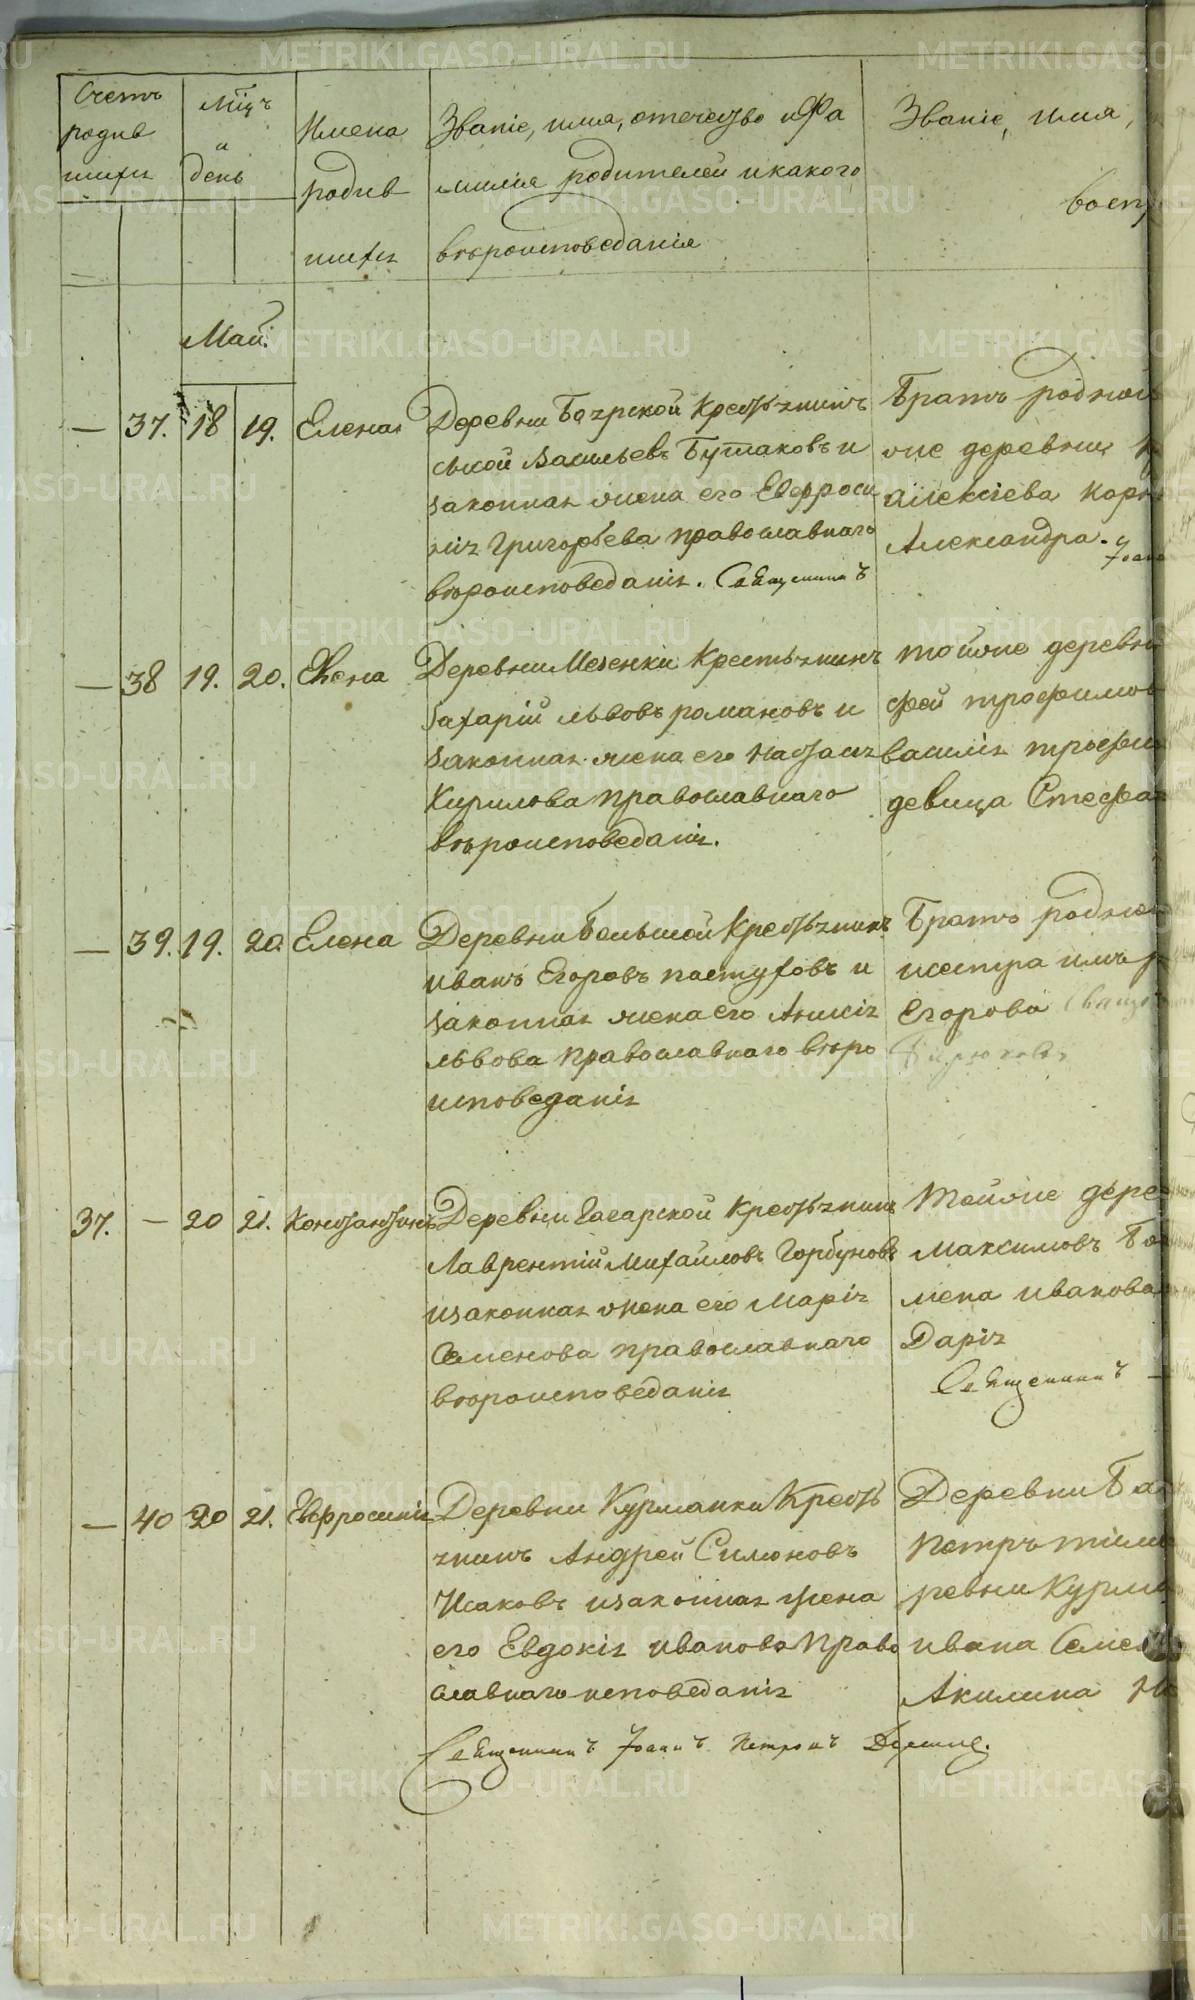 Счетъ родив шихся
Мцъ и день
Имена родив шихся
Званіе, имя, отечество и Фа
милія родителей и какого
вѣроисповеданія
Званіе, имя,
восп
Май.
— 37. 18 19. Елена
Деревни Боярской Крестьянинъ
Василь­евъ Бутаковъ и
законная жена его Евфроси
нія Григорьева православнаго
вѣроисповеданія. Священникъ
Братъ родной
же деревни
Алексѣева
Александра.
— 38 19. 20. Елена
Деревни Мезенки Крестьянинъ
Захарій Львовъ романовъ и
законная жена его Настасия
Кирилова православнаго
вѣроисповеданія.
тойже деревни
фей трофимов
василія трофи
девица Стефа
— 39. 19. 20. Елена
Деревни Большой Крестьянинъ
иванъ Егоровъ пастуховъ и
законная жена его Анисія
львова православнаго вѣро
исповеданія
Братъ родной
и сестра имъ
Егорова Свящ
Бирюковъ
37. — 20 21. Константинъ
Деревни Гагарской Крестьянинъ
Лаврентій Михайловъ Горбуновъ
и законная жена его Марія
Семенова православнаго
вѣроисповеданія
Тойже дере
Максимовъ
жена иванова
Дарія
Священникъ
— 40 20 21. Евфросинія
Деревни Курманки Кресть
янинъ Андрей Симоновъ
Исаковъ и законная жена
его Евдокія иванова Право
славнаго исповеданія
Деревни Ба
Петръ тим
ревни Курма
ивана Семе
Акилина
Священникъ Іоаннъ Петровъ Дерши.